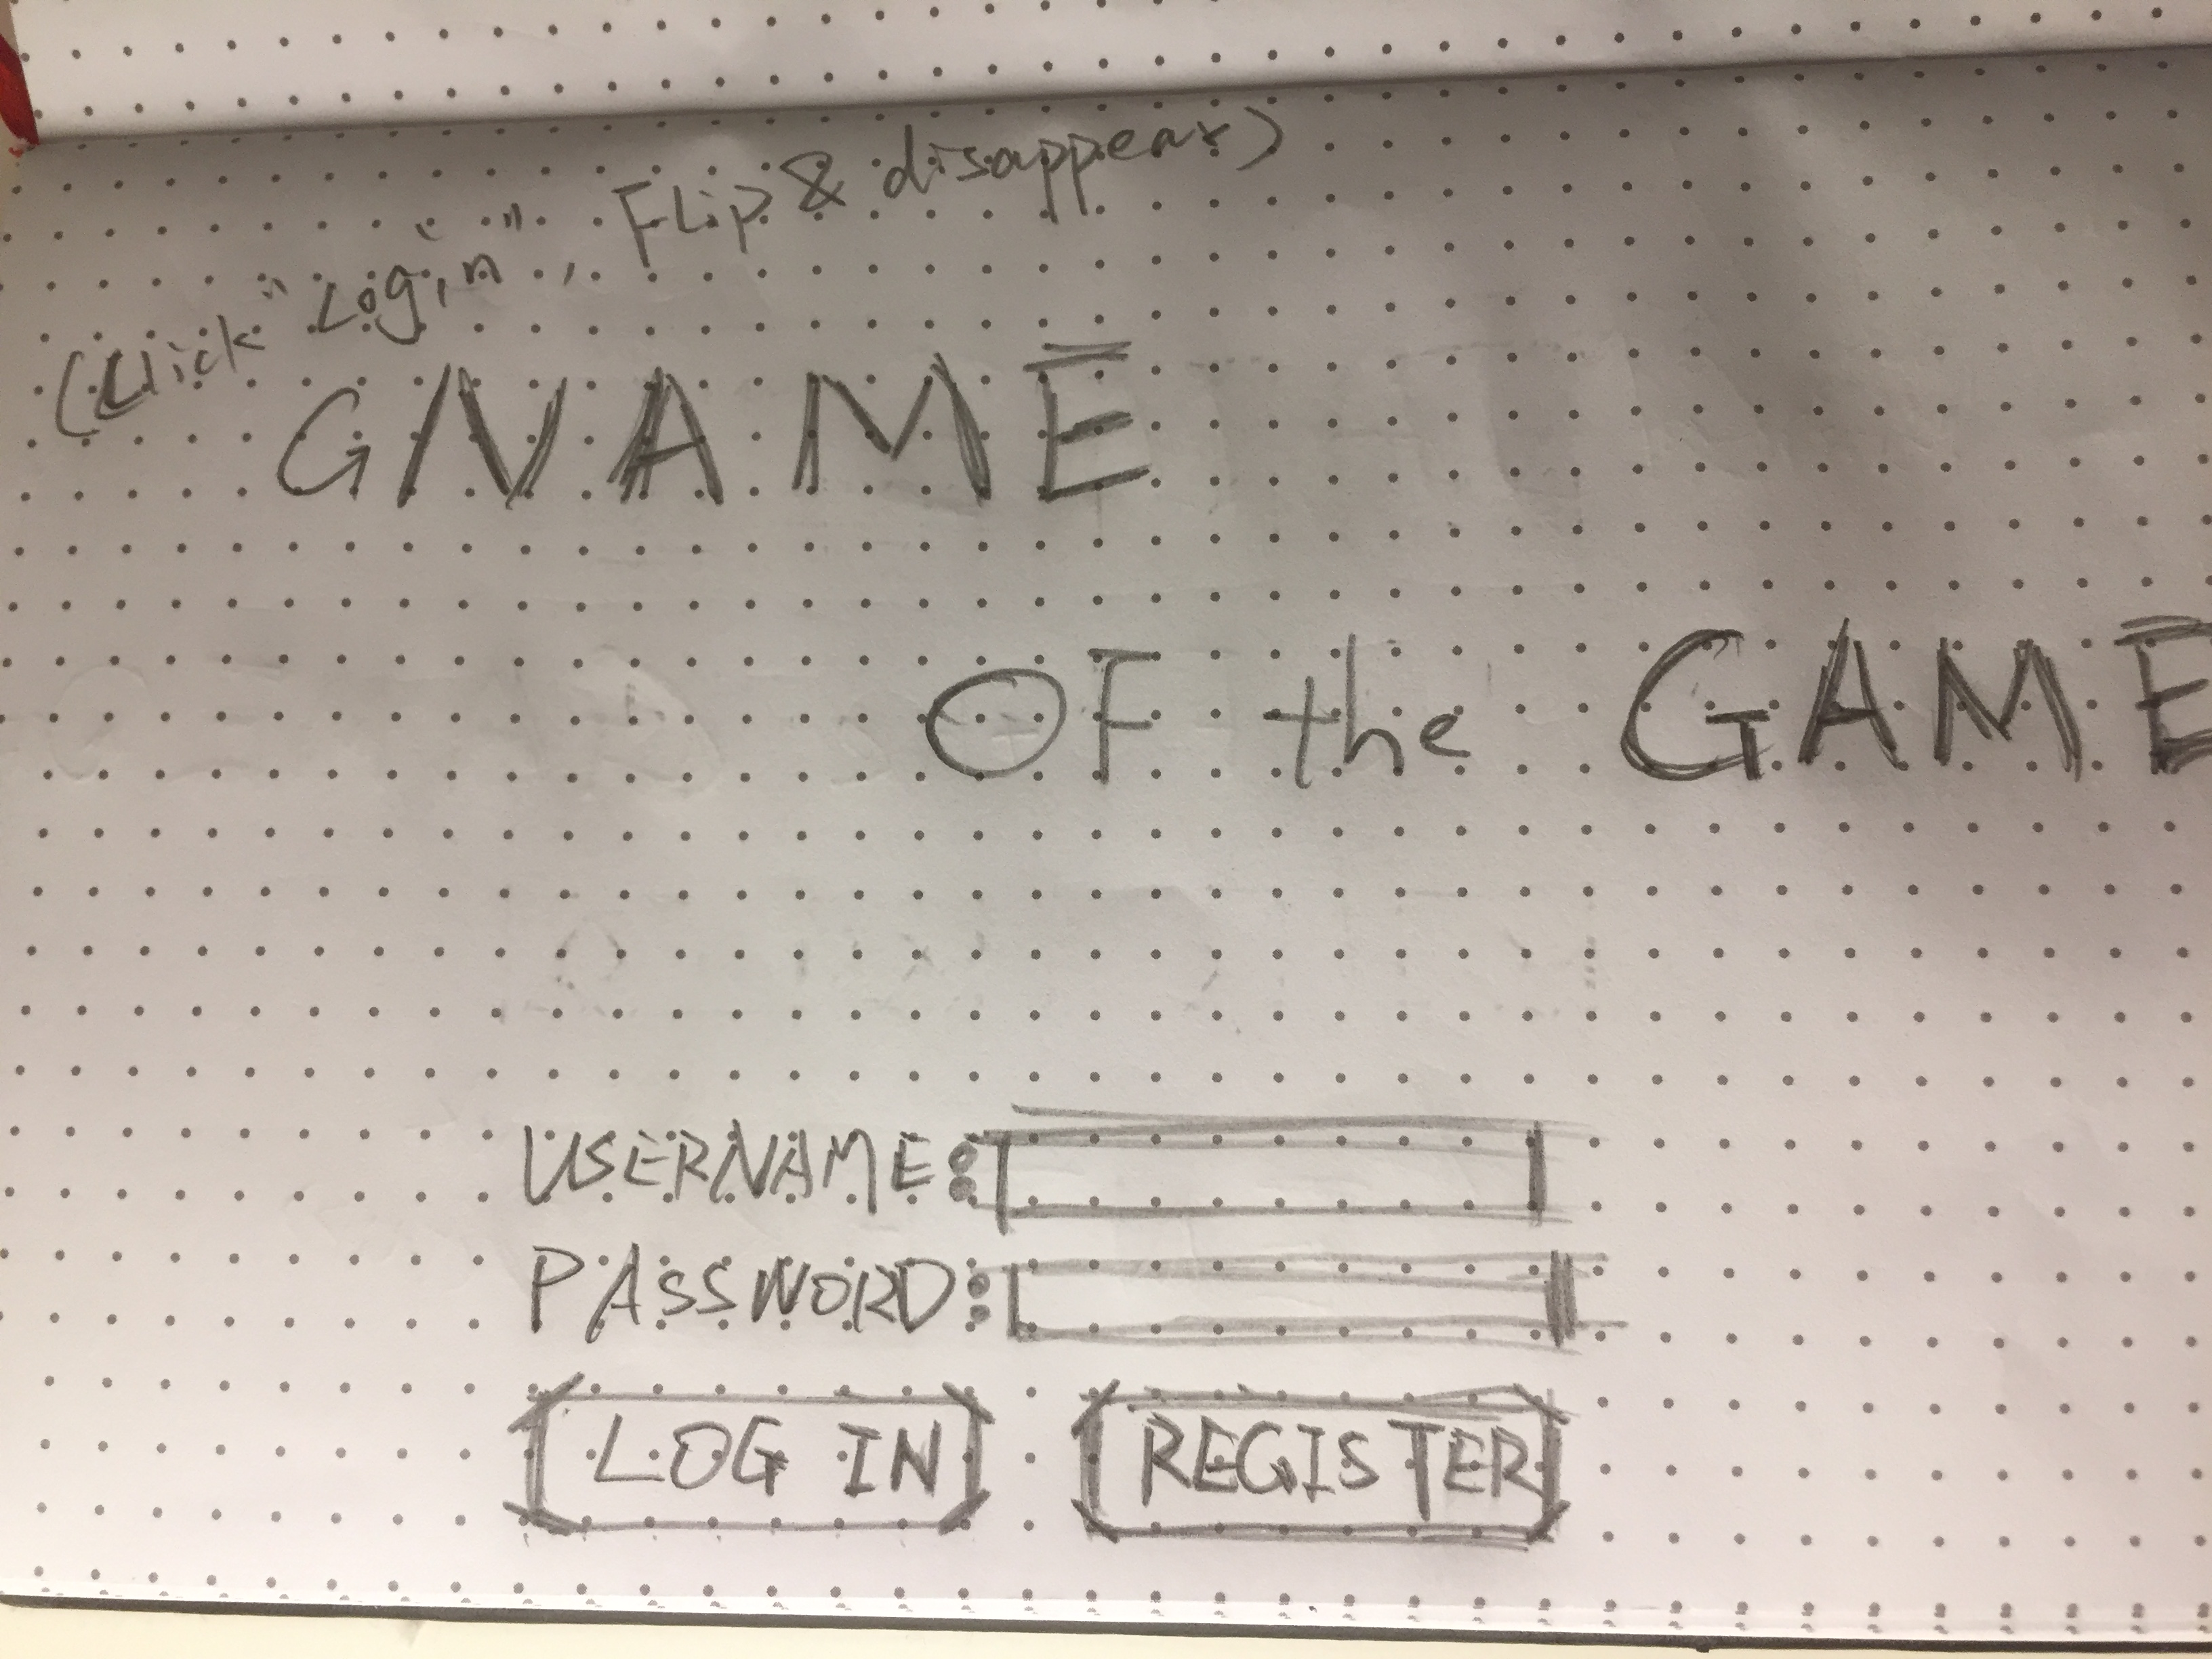 (Click "Login", Flip & disappear)
GNAME
OF the GAME
USERNAME:
PASSWORD:
LOG IN REGISTER